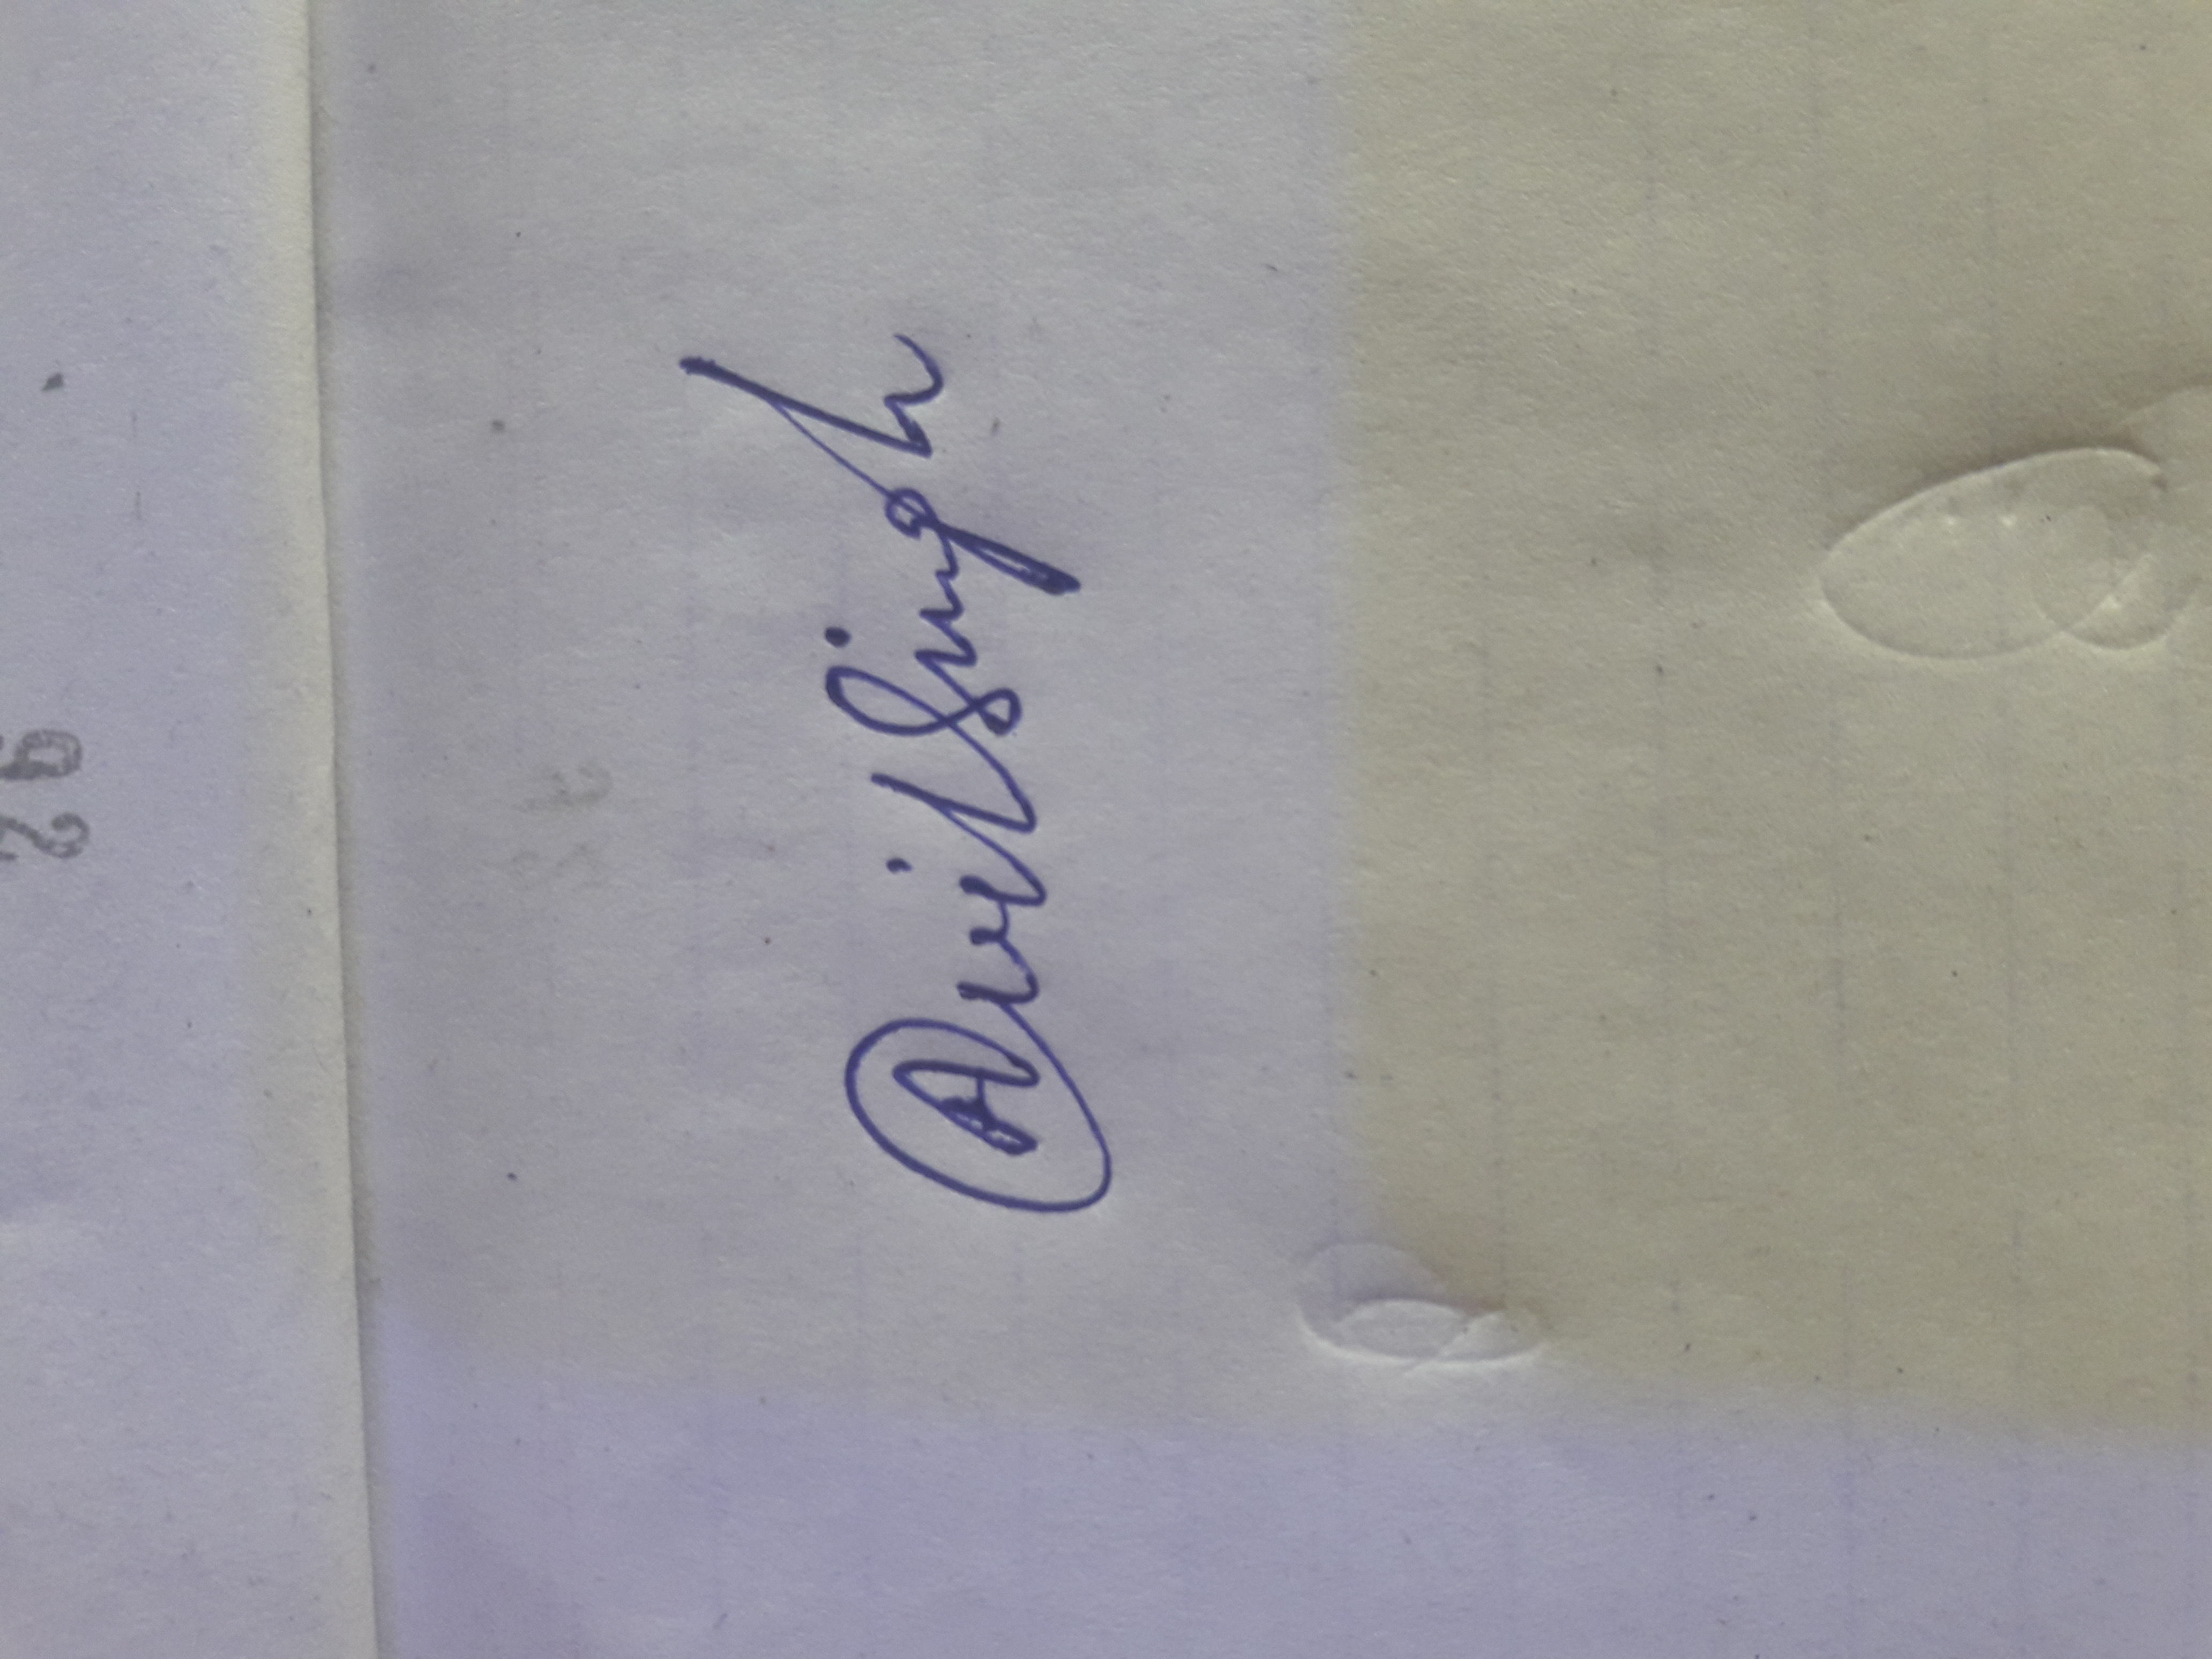 Anil Singh
92